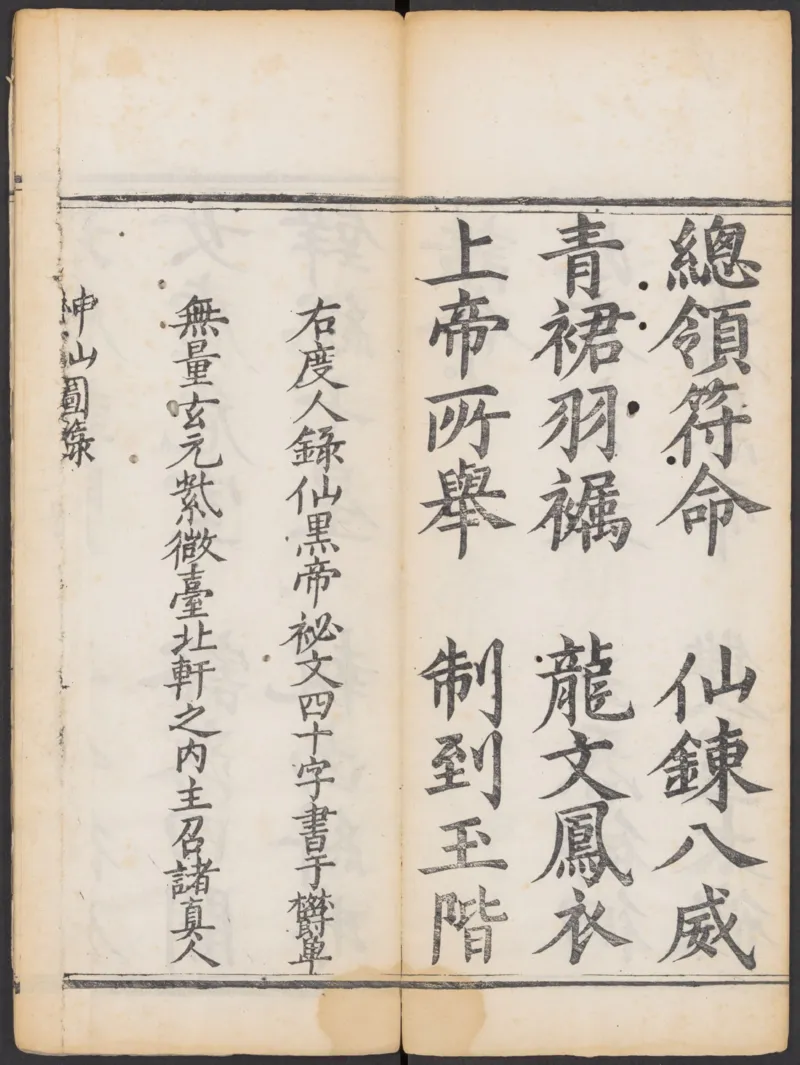 總領符命　仙錬八威
青裙羽裾　龍文鳳衣
上帝所舉　制到玉階
右度人錄仙黑帝祕文四十字書于欝單
無量玄元紫微臺北軒之内主召諸真人
神山圖錄